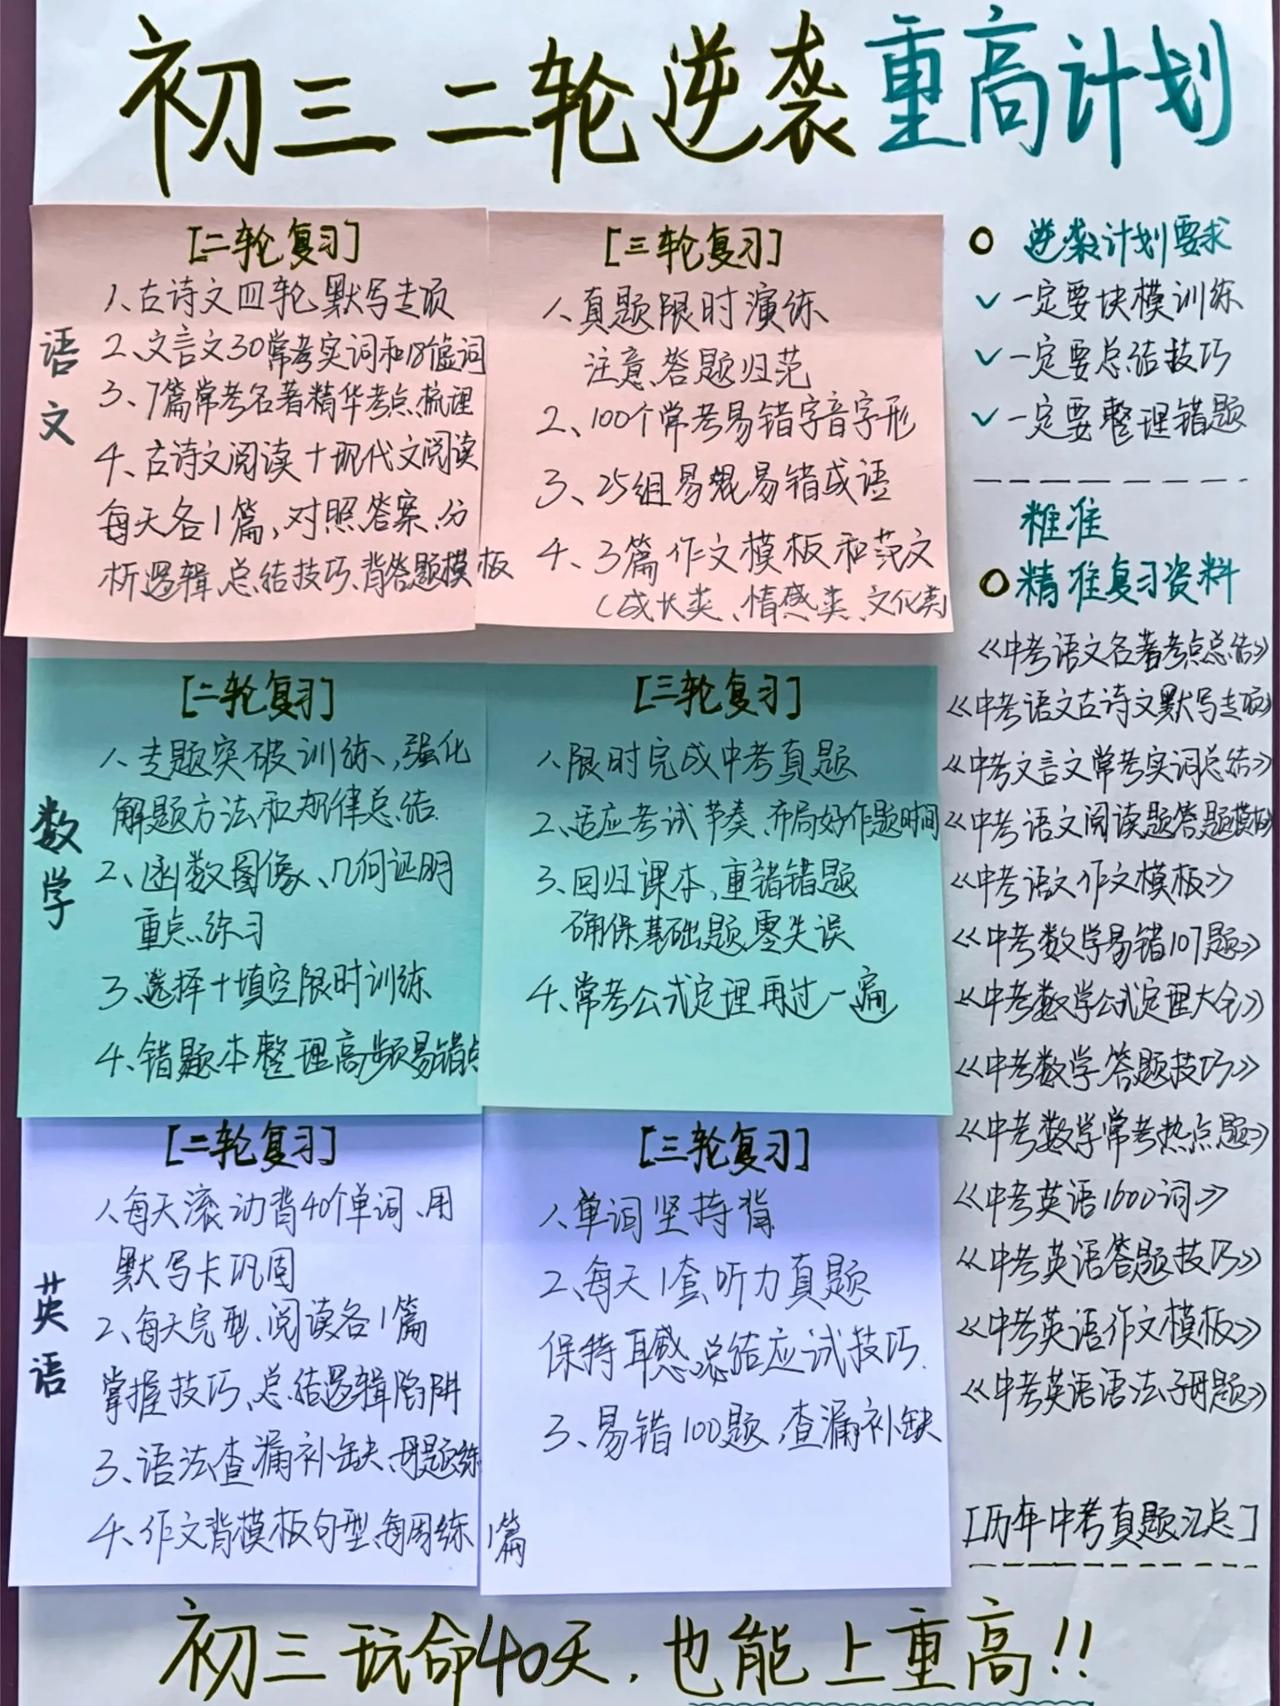 初三二轮逆袭重高计划
语文
[二轮复习]
1、古诗文四轮默写专项
2、文言文30常考实词和18个虚词
3、7篇常考名著精华考点梳理
4、古诗文阅读+现代文阅读
每天各1篇,对照答案、分
析逻辑、总结技巧、背答题模板
[三轮复习]
1、真题限时演练
注意、答题归范
2、100个常考易错字音字形
3、25组易混易错成语
4、3篇作文模板和范文
(成长类、情感类、文化类)
数学
[二轮复习]
1、专题突破训练,强化
解题方法和规律总结
2、函数图像、几何证明
重点练习
3、选择+填空限时训练
4、错题本整理高频易错点
[三轮复习]
1、限时完成中考真题
2、适应考试节奏、布局好作题时间
3、回归课本,重错错题
确保基础题零失误
4、常考公式定理再过一遍
英语
[二轮复习]
1、每天滚动背40个单词、用
默写卡巩固
2、每天完型、阅读各1篇
掌握技巧、总结逻辑陷阱
3、语法查漏补缺、母题练
4、作文背模板句型、每周练1篇
[三轮复习]
1、单词坚持背
2、每天1套听力真题
保持耳感、总结应试技巧.
3、易错100题,查漏补缺
逆袭计划要求
✓一定要块模训练
✓一定要总结技巧
✓一定要整理错题
精准
精准复习资料
《中考语文名著考点总结》
《中考语文古诗文默写专项》
《中考文言文常考实词总结》
《中考语文阅读题答题模板》
《中考语文作文模板》
《中考数学易错107题》
《中考数学公式定理大全》
《中考数学答题技巧》
《中考数学常考热点题》
《中考英语1600词》
《中考英语答题技巧》
《中考英语作文模板》
《中考英语语法母题》
[历年中考真题汇总]
初三玩命40天,也能上重高!!